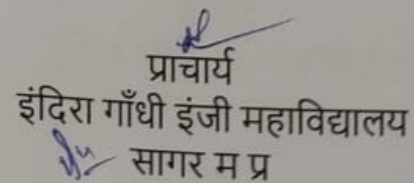 प्राचार्य
इंदिरा गाँधी इंजी महाविद्यालय
सागर म प्र